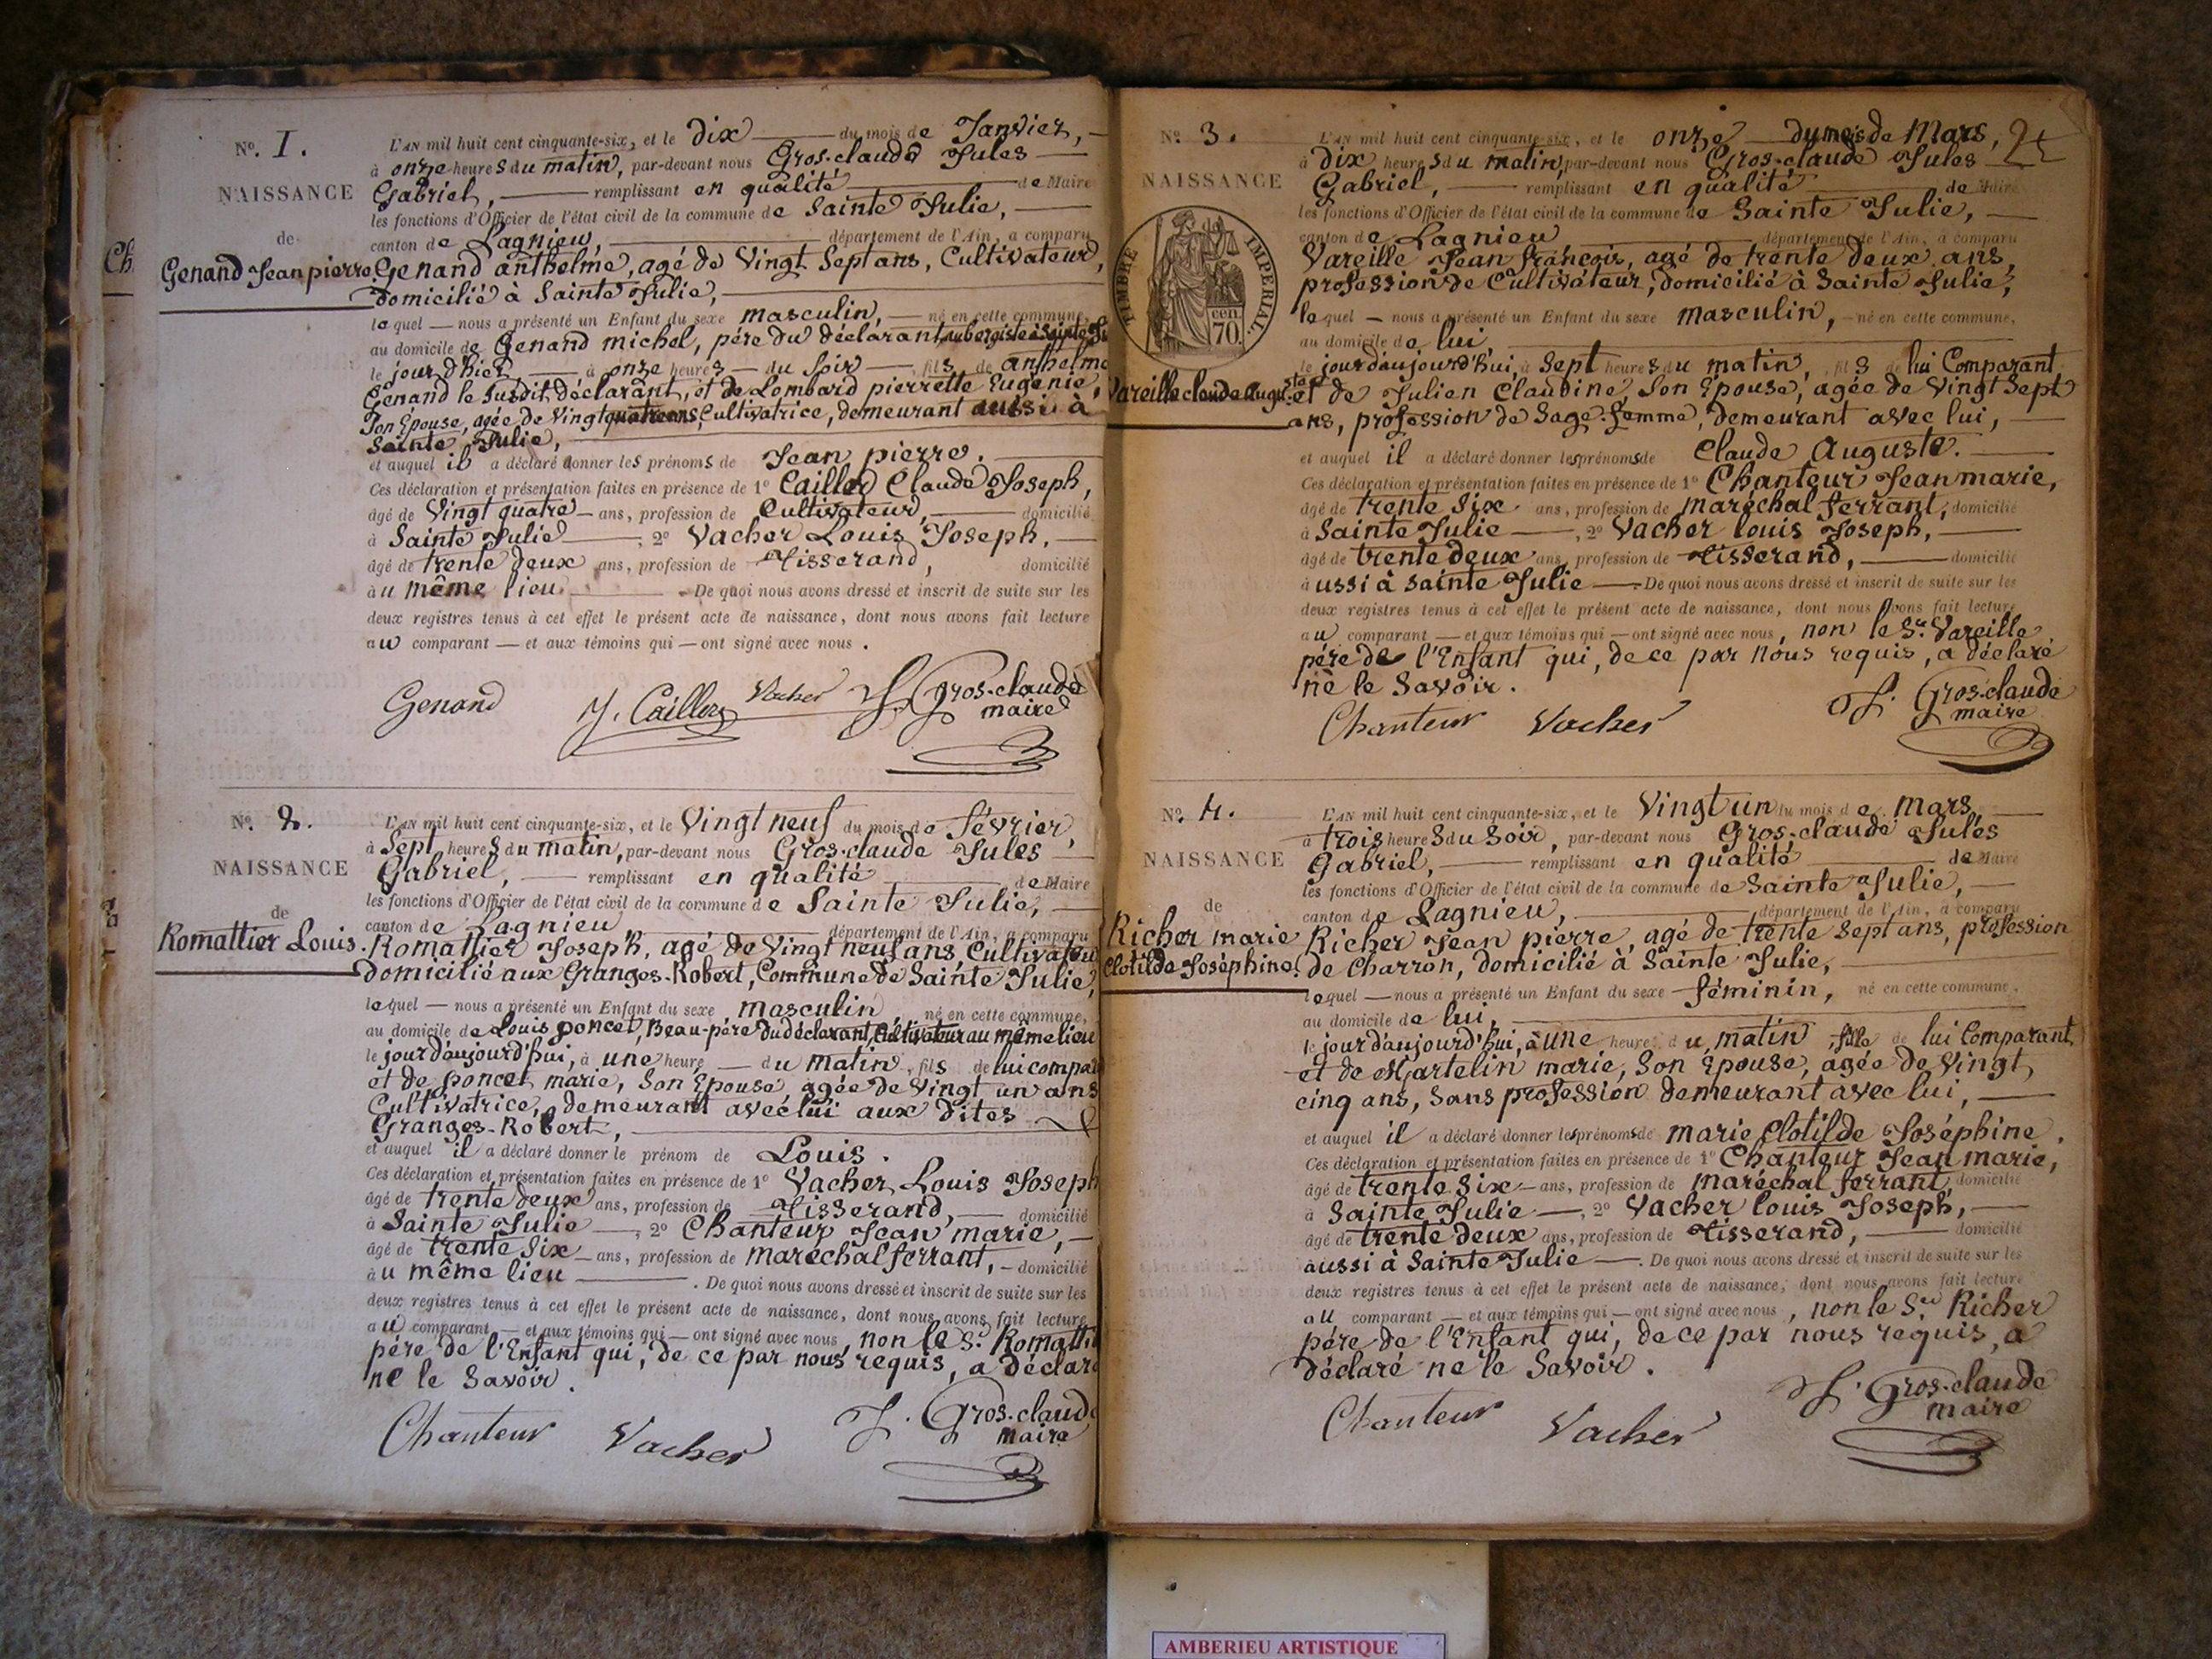 Nº. 1.
NAISSANCE
de
Genand Jean pierre
Ch
L'AN mil huit cent cinquante-six, et le dix du mois de Janvier,
à onze heures du matin, par-devant nous Gros-claude Jules
Gabriel, remplissant en qualité de Maire
les fonctions d'Officier de l'état civil de la commune de Sainte Julie,
canton de Lagnieu, département de l'Ain, a comparu
Genand anthelme, agé de Vingt Sept ans, Cultivateur,
domicilié à Sainte Julie,
lequel — nous a présenté un Enfant du sexe masculin, — né en cette commune,
au domicile de Genand michel, père du déclarant, aubergiste à Sainte
le jour d'hier, à onze heures du Soir, fils de anthelme
Genand le susdit déclarant, et de Lombard pierrette Eugénie,
Son Epouse, agée de Vingt quatre ans, Cultivatrice, demeurant aussi à
Sainte Julie,
et auquel il a déclaré donner les prénoms de Jean pierre.
Ces déclaration et présentation faites en présence de 1º Cailler Claude Joseph,
âgé de Vingt quatre ans, profession de Cultivateur, domicilié
à Sainte Julie, 2º Vacher Louis Joseph,
âgé de trente deux ans, profession de Tisserand, domicilié
au même lieu. De quoi nous avons dressé et inscrit de suite sur les
deux registres tenus à cet effet le présent acte de naissance, dont nous avons fait lecture
au comparant — et aux témoins qui — ont signé avec nous.
Genand J. Cailler Vacher J. Gros-claude
maire
Nº. 2.
NAISSANCE
de
Romattier Louis.
L'AN mil huit cent cinquante-six, et le Vingt neuf du mois de février,
à Sept heures du matin, par-devant nous Gros-claude Jules
Gabriel, remplissant en qualité de Maire
les fonctions d'Officier de l'état civil de la commune de Sainte Julie,
canton de Lagnieu, département de l'Ain, a comparu
Romattier Joseph, agé de Vingt neuf ans, Cultivateur
domicilié aux Granges-Robert, Commune de Sainte Julie,
lequel — nous a présenté un Enfant du sexe masculin, né en cette commune,
au domicile de Louis poncet, Beau-père du déclarant, Cultivateur au même lieu
le jour d'aujourd'hui, à une heure du matin, fils de lui compa
et de poncet marie, Son Epouse, agée de Vingt un ans
Cultivatrice, demeurant avec lui aux dites
Granges-Robert,
et auquel il a déclaré donner le prénom de Louis.
Ces déclaration et présentation faites en présence de 1º Vacher Louis Joseph
âgé de trente deux ans, profession de Tisserand, domicilié
à Sainte Julie, 2º Chanteur Jean marie,
âgé de trente Six ans, profession de maréchal ferrant, domicilié
au même lieu. De quoi nous avons dressé et inscrit de suite sur les
deux registres tenus à cet effet le présent acte de naissance, dont nous avons fait lecture
au comparant — et aux témoins qui — ont signé avec nous, non le Sr. Romatti
père de l'Enfant qui, de ce par nous requis, a déclaré
ne le Savoir.
Chanteur Vacher J. Gros-claude
maire
Nº. 3.
NAISSANCE
de
TIMBRE IMPERIAL
70. cen.
Vareille claude August
L'AN mil huit cent cinquante-six, et le onze du mois de Mars,
à dix heures du matin, par-devant nous Gros-claude Jules
Gabriel, remplissant en qualité de Maire
les fonctions d'Officier de l'état civil de la commune de Sainte Julie,
canton de Lagnieu département de l'Ain, a comparu
Vareille Jean françois, agé de trente deux ans,
profession de Cultivateur, domicilié à Sainte Julie,
lequel — nous a présenté un Enfant du sexe masculin, — né en cette commune,
au domicile de lui
le jour d'aujourd'hui, à Sept heures du matin, fils de lui Comparant,
et de Julien Claudine, Son Epouse, agée de Vingt Sept
ans, profession de Sage-femme, demeurant avec lui,
et auquel il a déclaré donner les prénoms de Claude Auguste.
Ces déclaration et présentation faites en présence de 1º Chanteur Jean marie,
âgé de trente Six ans, profession de maréchal ferrant, domicilié
à Sainte Julie, 2º Vacher louis Joseph,
âgé de trente deux ans, profession de Tisserand, domicilié
aussi à Sainte Julie. De quoi nous avons dressé et inscrit de suite sur les
deux registres tenus à cet effet le présent acte de naissance, dont nous avons fait lecture
au comparant — et aux témoins qui — ont signé avec nous, non le Sr. Vareille
père de l'Enfant qui, de ce par nous requis, a déclaré
ne le Savoir.
Chanteur Vacher J. Gros-claude
maire
Nº. 4.
NAISSANCE
de
Richer marie
Clotilde Joséphine.
L'AN mil huit cent cinquante-six, et le Vingt un du mois de Mars,
à trois heures du Soir, par-devant nous Gros-claude Jules
Gabriel, remplissant en qualité de Maire
les fonctions d'Officier de l'état civil de la commune de Sainte Julie,
canton de Lagnieu, département de l'Ain, a comparu
Richer Jean pierre, agé de trente Sept ans, profession
de Charron, domicilié à Sainte Julie,
lequel — nous a présenté un Enfant du sexe féminin, né en cette commune,
au domicile de lui,
le jour d'aujourd'hui, à une heure du matin, fille de lui Comparant
et de Martelin marie, Son Epouse, agée de Vingt
cinq ans, Sans profession demeurant avec lui,
et auquel il a déclaré donner les prénoms de marie Clotilde Joséphine.
Ces déclaration et présentation faites en présence de 1º Chanteur Jean marie,
âgé de trente Six ans, profession de maréchal ferrant, domicilié
à Sainte Julie, 2º Vacher louis Joseph,
âgé de trente deux ans, profession de Tisserand, domicilié
aussi à Sainte Julie. De quoi nous avons dressé et inscrit de suite sur les
deux registres tenus à cet effet le présent acte de naissance, dont nous avons fait lecture
au comparant — et aux témoins qui — ont signé avec nous, non le Sr. Richer
père de l'Enfant qui, de ce par nous requis, a
déclaré ne le Savoir.
Chanteur Vacher J. Gros-claude
maire
AMBERIEU ARTISTIQUE